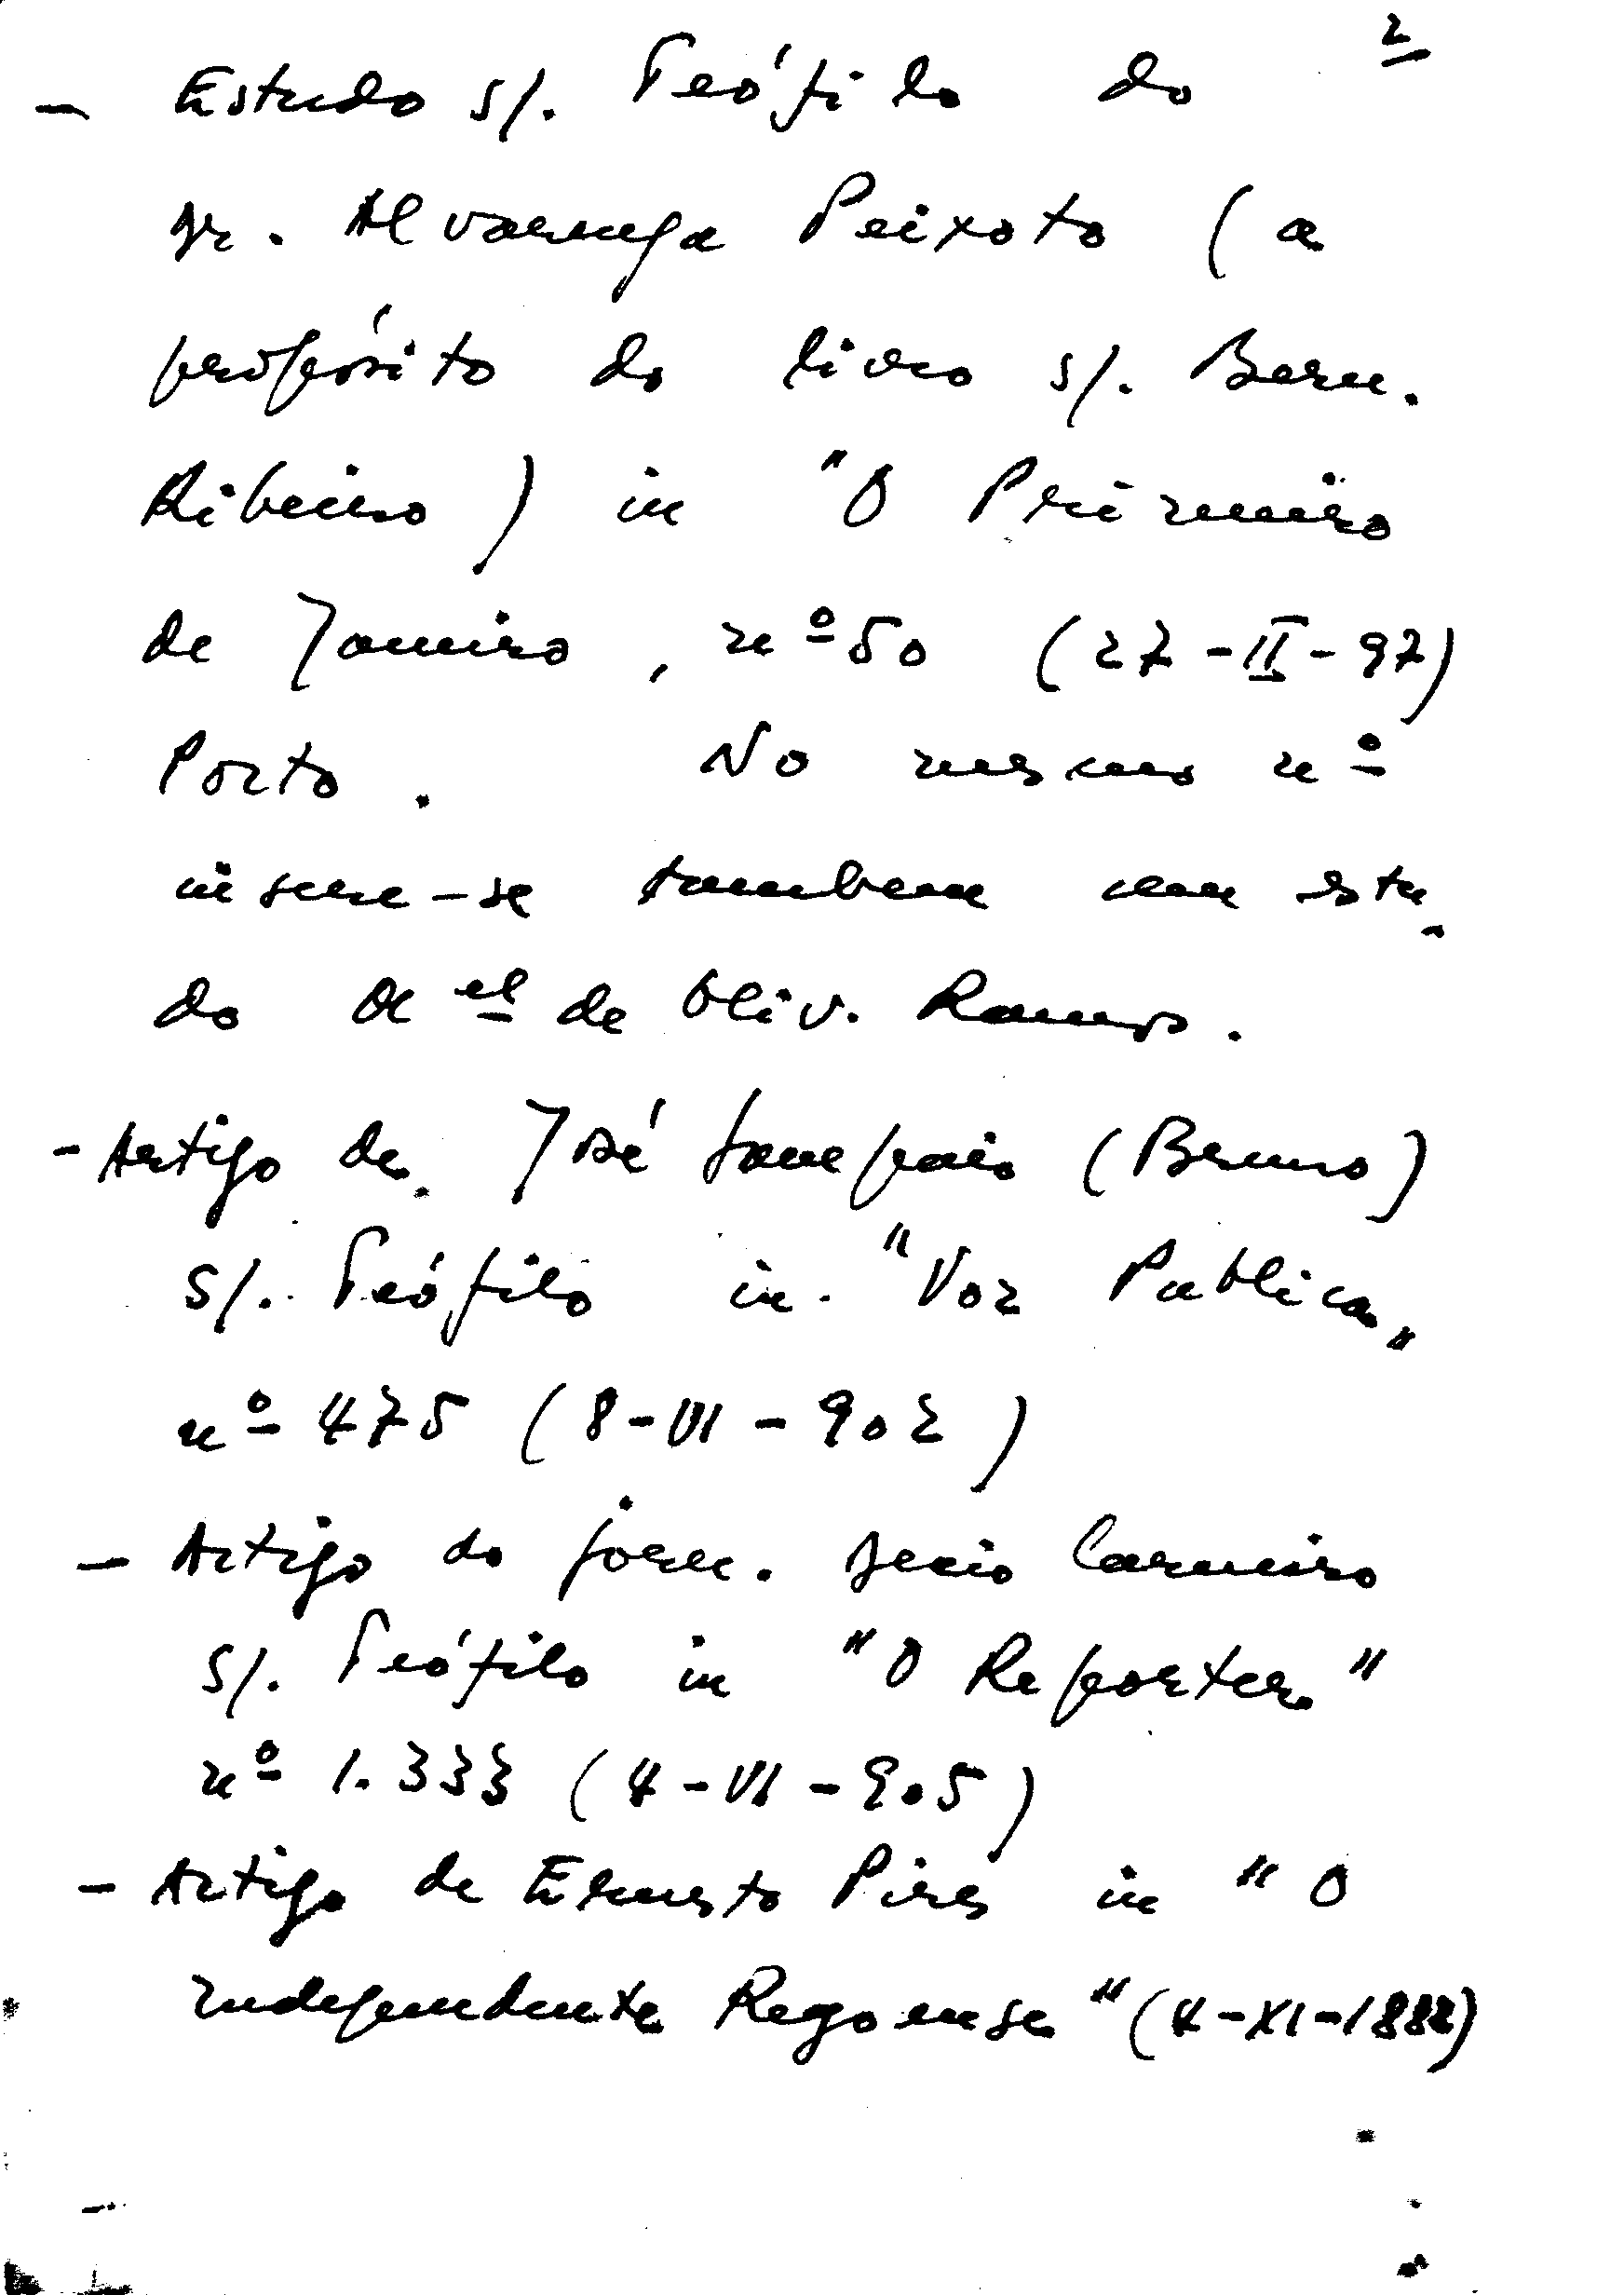 2
- Estudo s/. Teófilo do
sr. Alvarenga Peixoto (a
propósito do livro s/. Bern.
Ribeiro) in "O Primeiro
de Janeiro, nº 50 (27-II-97)
Porto. No mesmo nº
insere-se tambem um estu-
do M el de Oliv. Ramos.
- Artigo de José Sampaio (Bruno)
s/. Teófilo in "Voz Publica"
nº 475 (8-VI-902)
- Artigo do jorn. Carneiro
s/. Teófilo in "O Reporter"
nº 1.333 (4-VI-905)
- Artigo de Ernesto Pires in "O
Independente Regoense" (4-XI-1882)